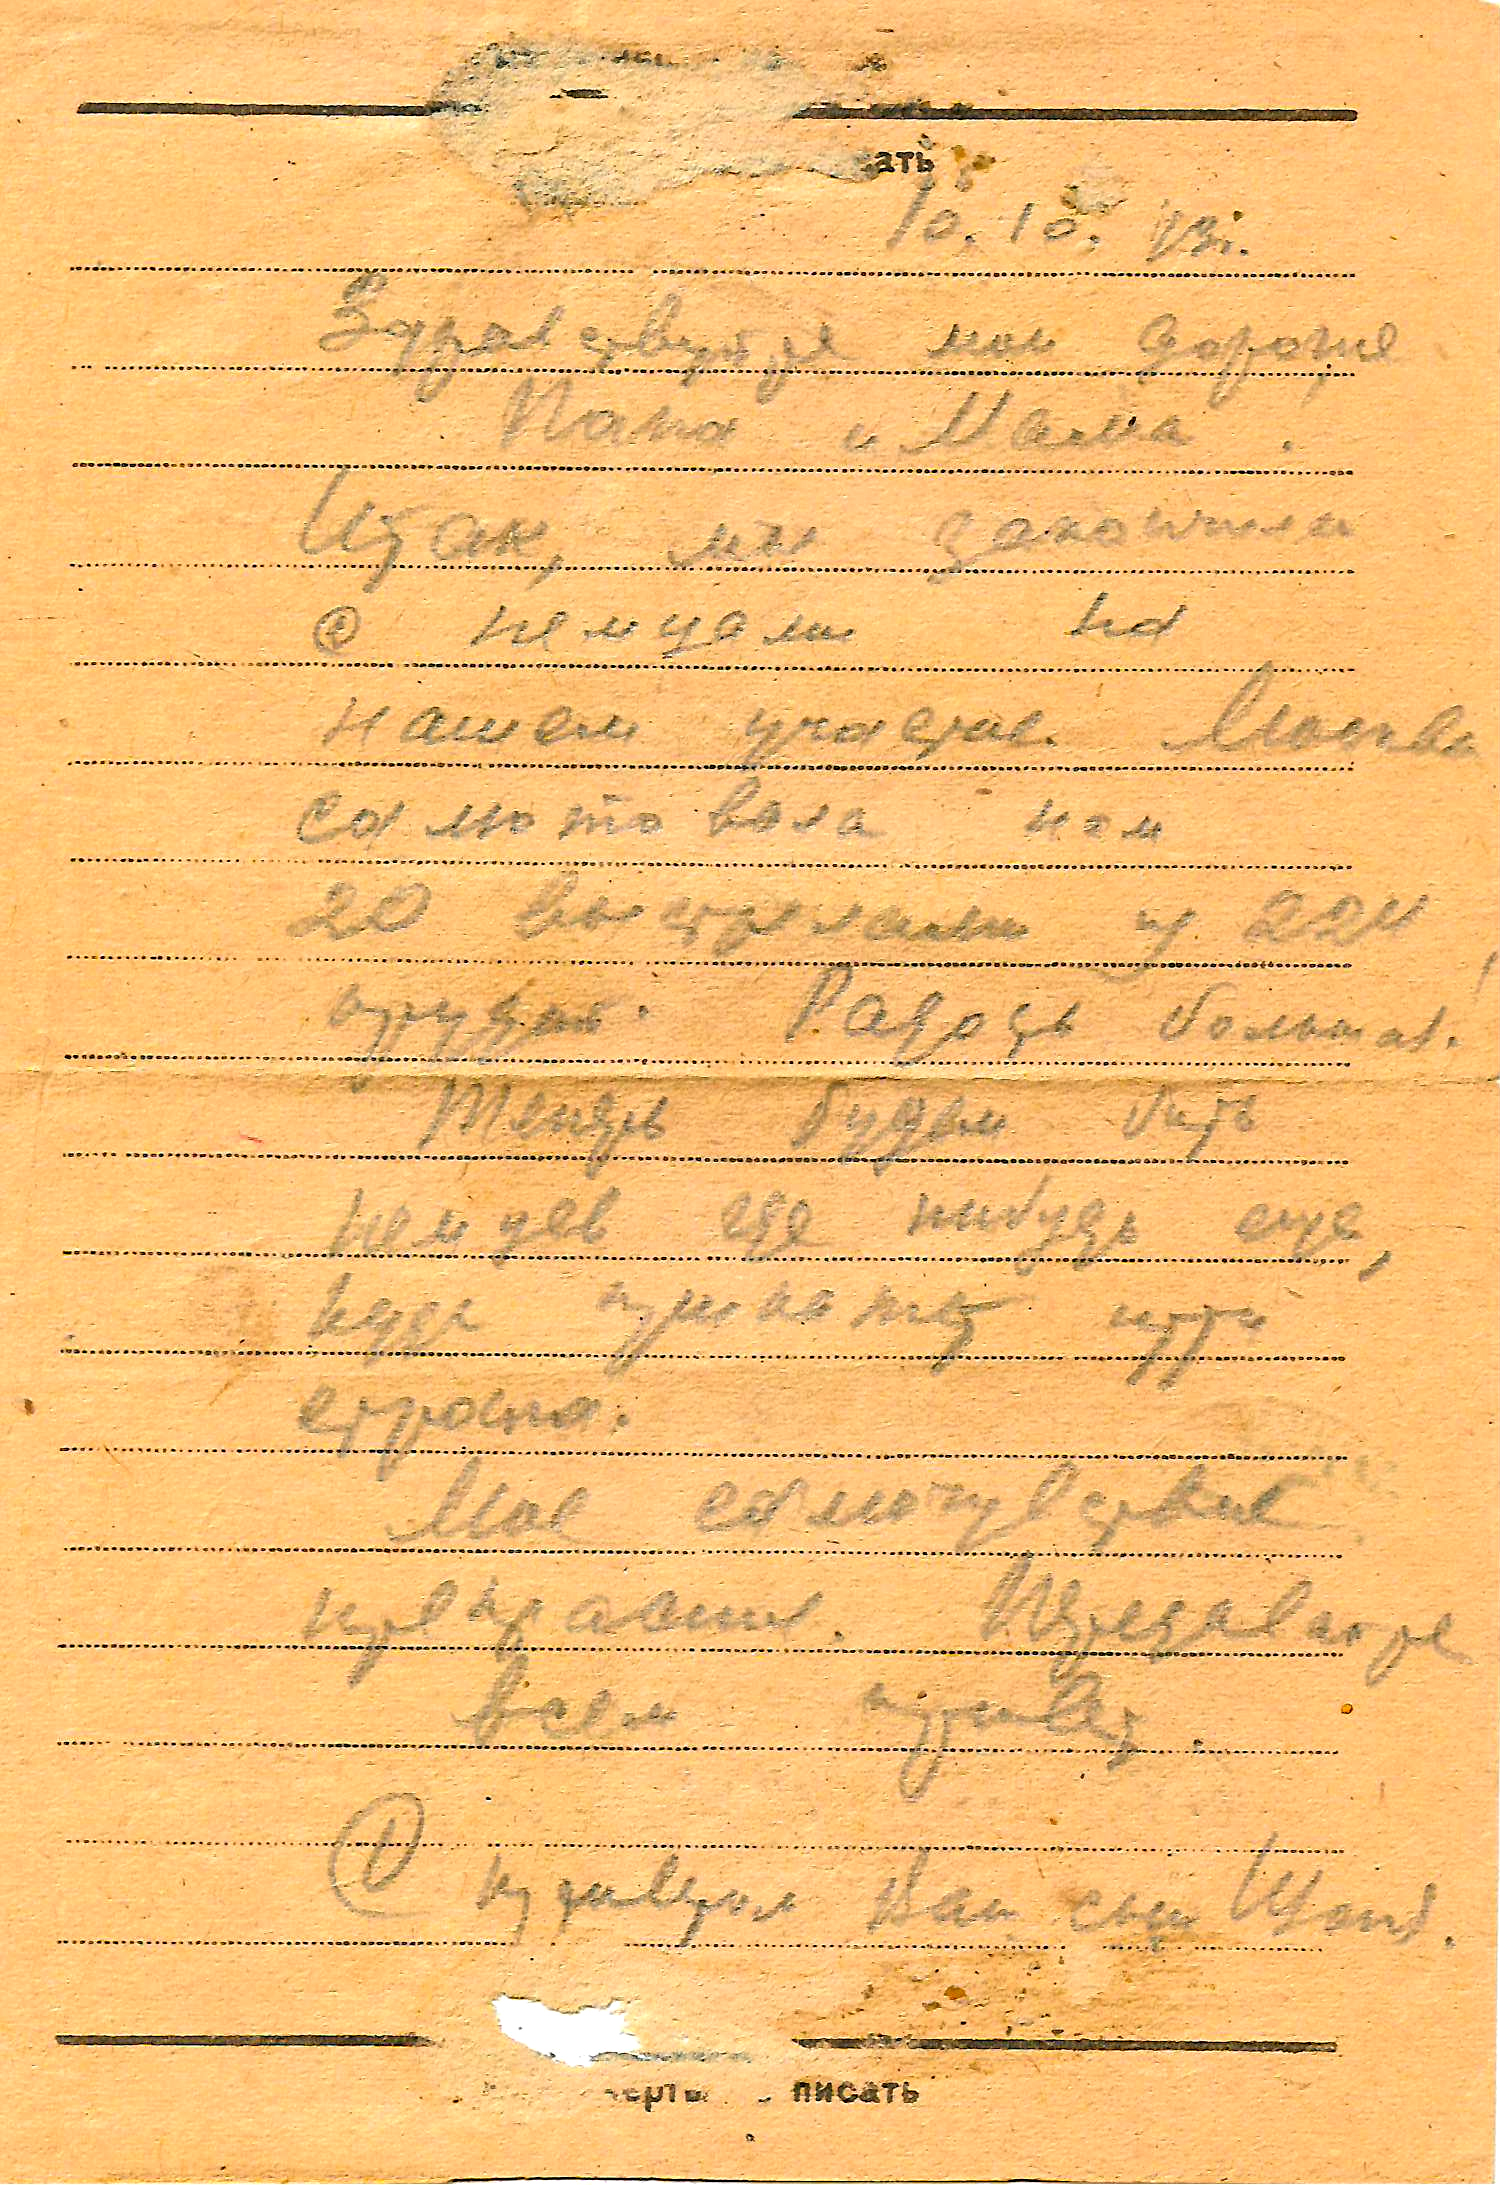 ать
10.10.43г.
Здравствуйте мои дорогие
Папа и Мама.
Итак, мы закончили
с немцами на
нашем участке. Москва
салютовала нам
20 выстрелами из 224
орудий. Радость большая!
Теперь будем бить
немцев где нибудь еще,
куда прикажут
Мое самочувствие
прекрасное. Передавайте
всем привет.
С приветом Ваш сын
черты писать